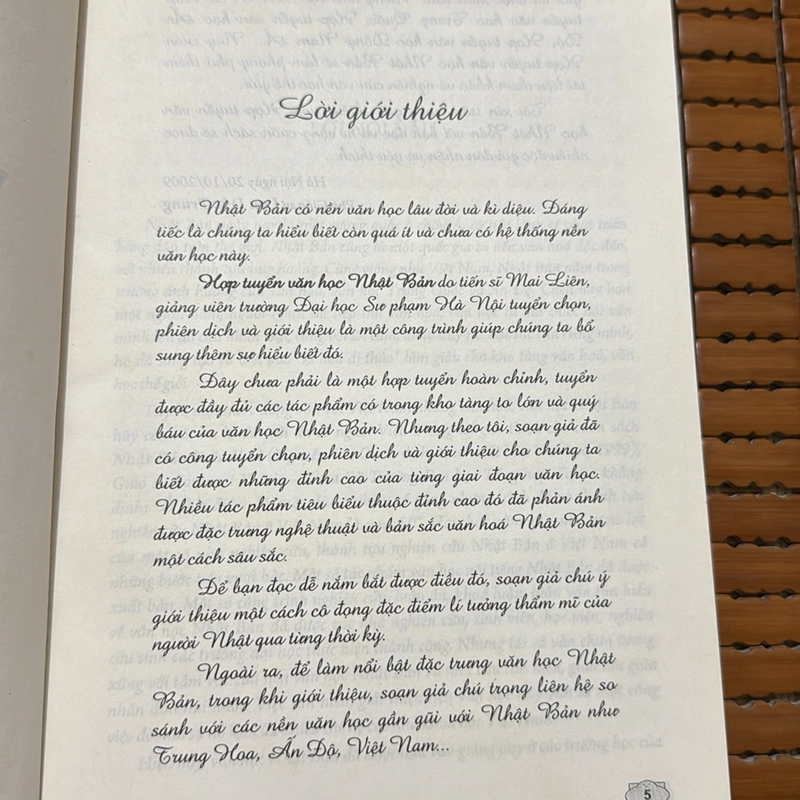 Lời giới thiệu
Nhật Bản có nền văn học lâu đời và kì diệu. Đáng
tiếc là chúng ta hiểu biết còn quá ít và chưa có hệ thống nền
văn học này.
Hợp tuyển văn học Nhật Bản do tiến sĩ Mai Liên,
giảng viên trường Đại học Sư phạm Hà Nội tuyển chọn,
phiên dịch và giới thiệu là một công trình giúp chúng ta bổ
sung thêm sự hiểu biết đó.
Đây chưa phải là một hợp tuyển hoàn chỉnh, tuyển
được đầy đủ các tác phẩm có trong kho tàng to lớn và quý
báu của văn học Nhật Bản. Nhưng theo tôi, soạn giả đã
có công tuyển chọn, phiên dịch và giới thiệu cho chúng ta
biết được những đỉnh cao của từng giai đoạn văn học.
Nhiều tác phẩm tiêu biểu thuộc đỉnh cao đó đã phản ánh
được đặc trưng nghệ thuật và bản sắc văn hoá Nhật Bản
một cách sâu sắc.
Để bạn đọc dễ nắm bắt được điều đó, soạn giả chú ý
giới thiệu một cách cô đọng đặc điểm lí tưởng thẩm mĩ của
người Nhật qua từng thời kỳ.
Ngoài ra, để làm nổi bật đặc trưng văn học Nhật
Bản, trong khi giới thiệu, soạn giả chú trọng liên hệ so
sánh với các nền văn học gần gũi với Nhật Bản như
Trung Hoa, Ấn Độ, Việt Nam...
5